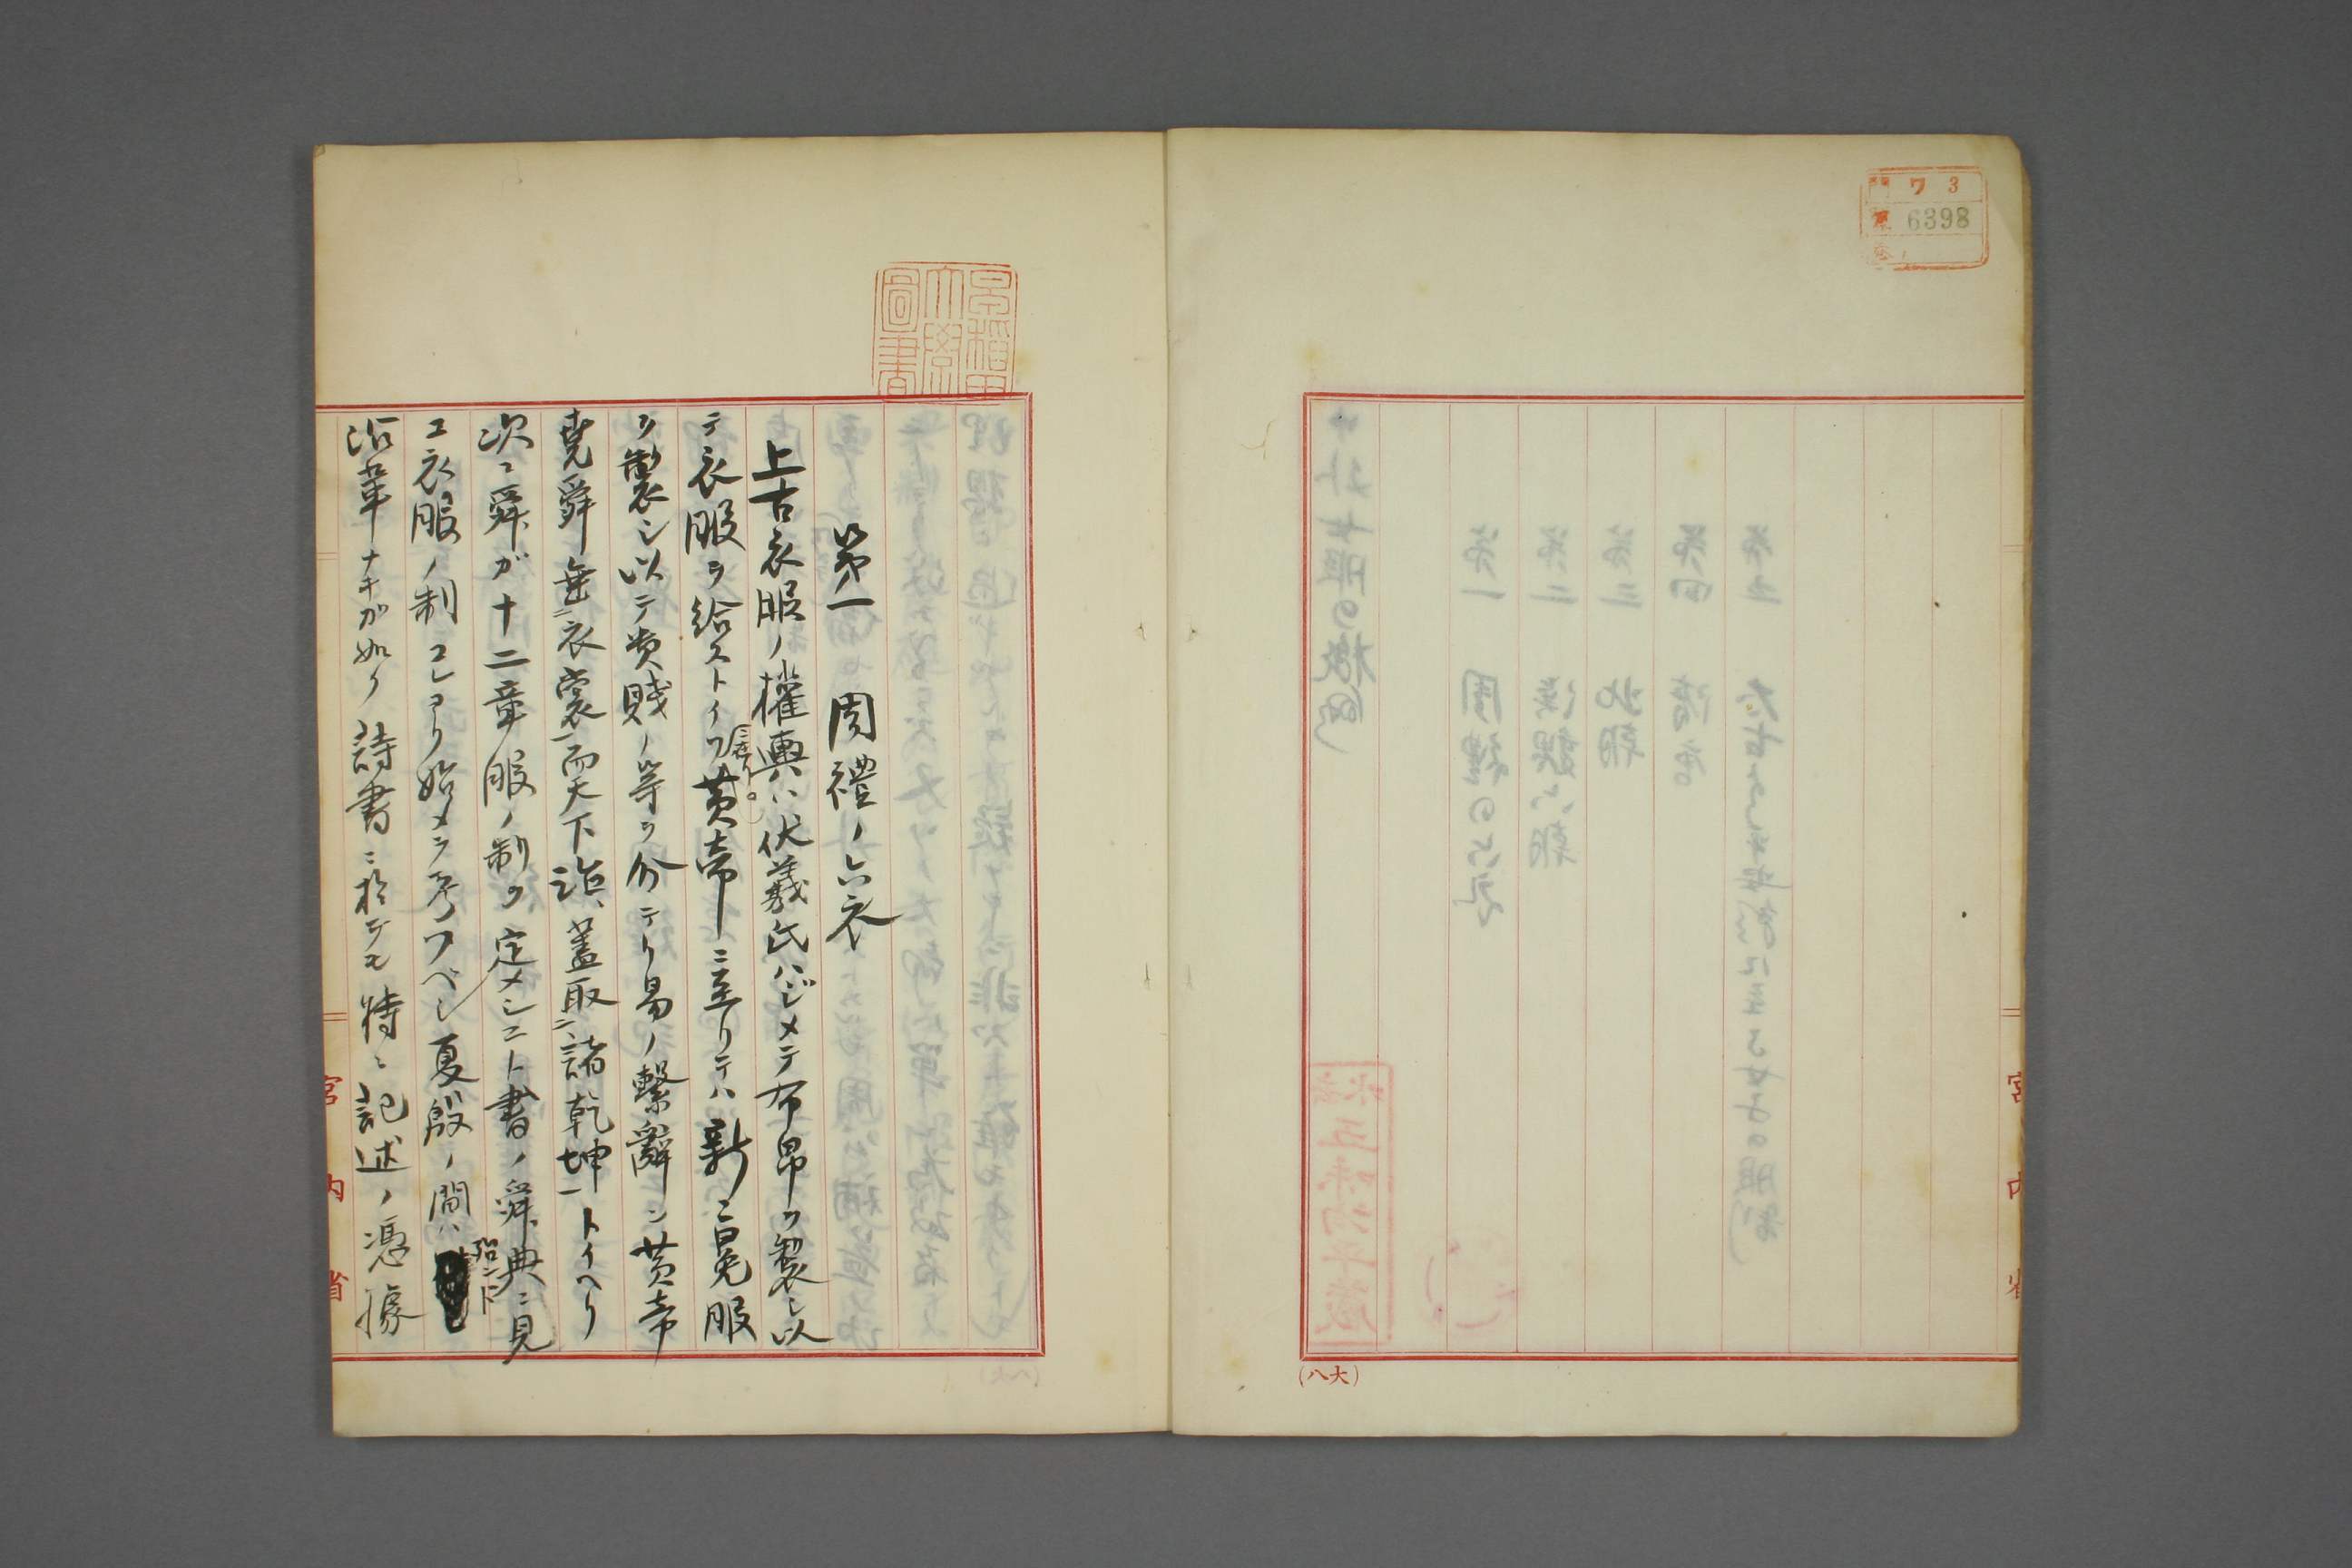 ワ 3
6398
宮内省
(八大)
早稲田大學圖書
第一 周禮ノ六衣
上古衣服ノ權輿ハ伏羲氏ハジメテ布帛ヲ製シ以
テ衣服ヲ給ストイフ黄帝ニ至リテハ新ニ冕服
ヲ製シ以テ貴賤ノ等ヲ分テリ易ノ繋辭ニ黄帝
堯舜垂ニ衣裳一而天下治、蓋取ニ諸乾坤一トイヘリ
次ニ舜ガ十二章服ノ制ヲ定メシコト書ノ舜典ニ見
エ衣服ノ制コレヨリ始メテ考フベシ夏殷ノ間ハ殆ンド
沿革ナキガ如ク詩書ニ於テモ特ニ記述ノ憑據
宮内省